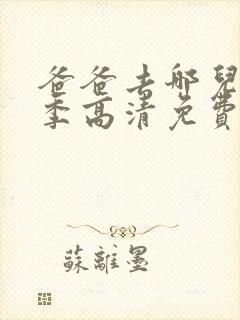 爸爸去哪兒
季高清免費
蘇離墨